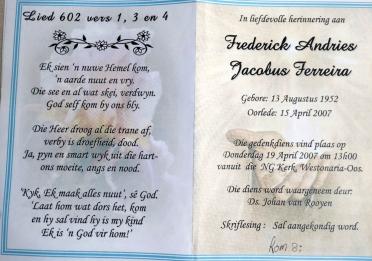 Lied 602 vers 1, 3 en 4
Ek sien 'n nuwe Hemel kom,
'n aarde nuut en vry.
Die see en al wat skei, verdwyn.
God self kom by ons bly.
Die Heer droog al die trane af,
verby is droefheid, dood.
Ja, pyn en smart wyk uit die hart-
ons moeite, angs en nood.
'Kyk, Ek maak alles nuut', sê God.
'Laat hom wat dors het, kom
en hy sal vind hy is my kind
Ek is 'n God vir hom!'
In liefdevolle herinnering aan
Frederick Andries
Jacobus Ferreira
Gebore: 13 Augustus 1952
Oorlede: 15 April 2007
Die gedenkdiens vind plaas op
Donderdag 19 April 2007 om 13h00
vanuit die NG Kerk, Westonaria-Oos.
Die diens word waargeneem deur:
Ds. Johan van Rooyen
Skriflesing : Sal aangekondig word.
Rom 8: